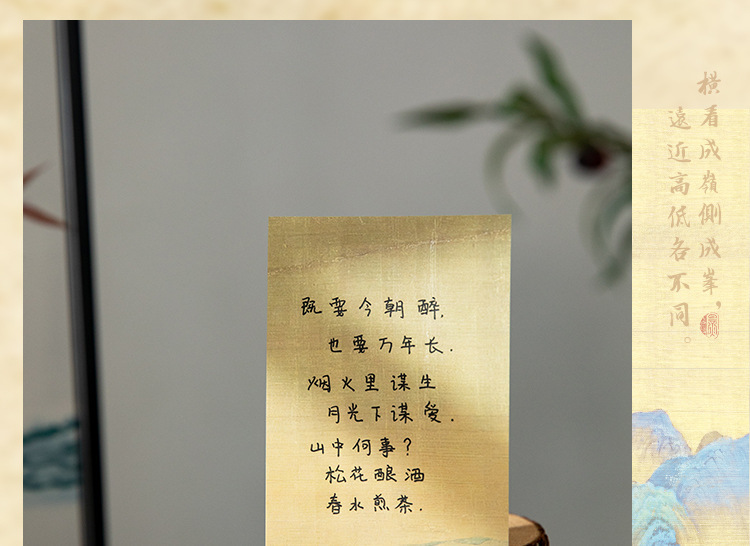 既要今朝醉,
也要万年长.
烟火里谋生
月光下谋爱.
山中何事?
松花酿酒
春水煎茶.
横看成嶺側成峯，
遠近高低各不同。